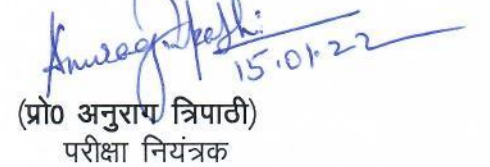 Anurag Tripathi
15.01.22
(प्रो0 अनुराग त्रिपाठी)
परीक्षा नियंत्रक